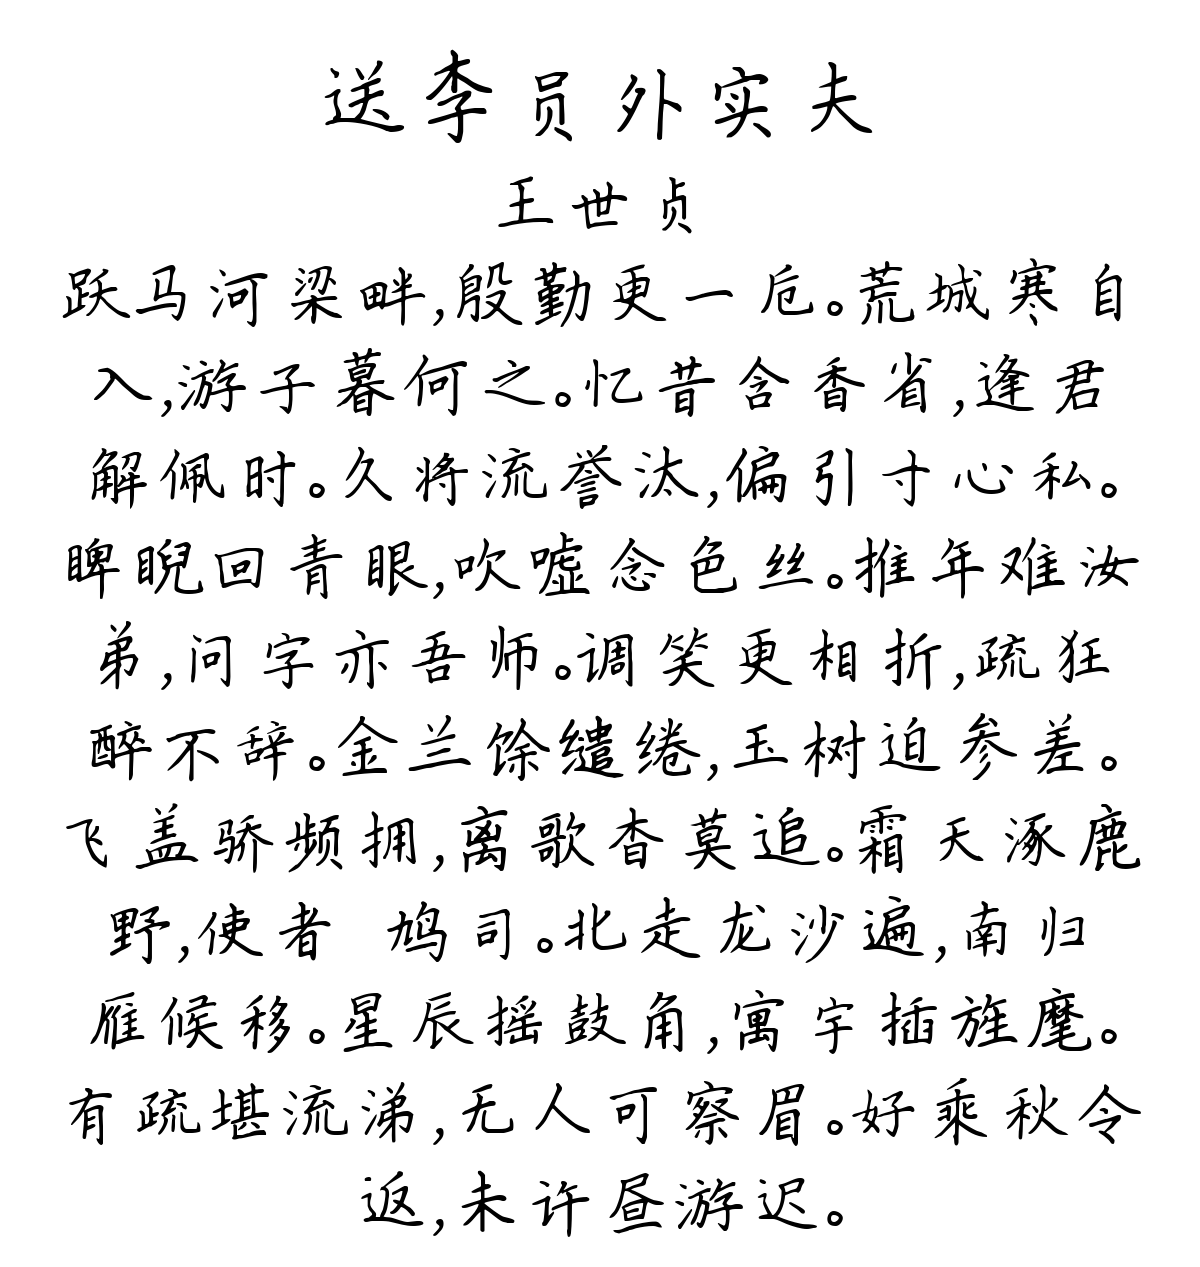 送李员外实夫
王世贞
跃马河梁畔,殷勤更一卮。荒城寒自
入,游子暮何之。忆昔含香省,逢君
解佩时。久将流誉汰,偏引寸心私。
睥睨回青眼,吹嘘念色丝。推年难汝
弟,问字亦吾师。调笑更相折,疏狂
醉不辞。金兰馀缱绻,玉树迫参差。
飞盖骄频拥,离歌杳莫追。霜天涿鹿
野,使者 鸠司。北走龙沙遍,南归
雁候移。星辰摇鼓角,寓宇插旌麾。
有疏堪流涕,无人可察眉。好乘秋令
返,未许昼游迟。